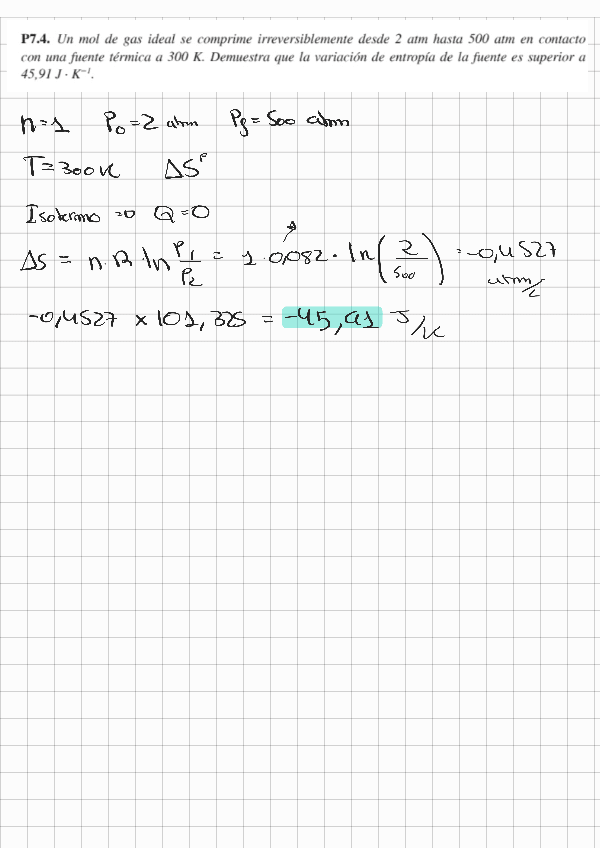 P7.4. Un mol de gas ideal se comprime irreversiblemente desde 2 atm hasta 500 atm en contacto
con una fuente térmica a 300 K. Demuestra que la variación de entropía de la fuente es superior a
45,91 J · K⁻¹.
n=1 P₀=2 atm Pf=500 atm
T=300K ΔSᶠ
Isotermo ⇒ Q=0
ΔS = n·R·ln P₁/P₂ = 1·0,082·ln(2/500) = -0,4527 atm/L
-0,4527 × 101,325 = -45,91 J/K